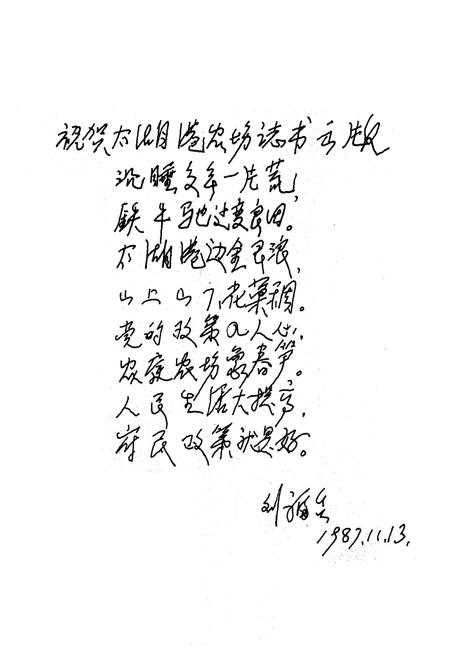 祝贺太湖港农场志书出版
沉睡多年一片荒,
铁牛驰过变良田。
太湖港边金风浪,
山上山下花药稠。
党的政策人人心,
家庭农场象春笋。
人民生活大提高,
富民政策就是好。
刘福
1987.11.13.